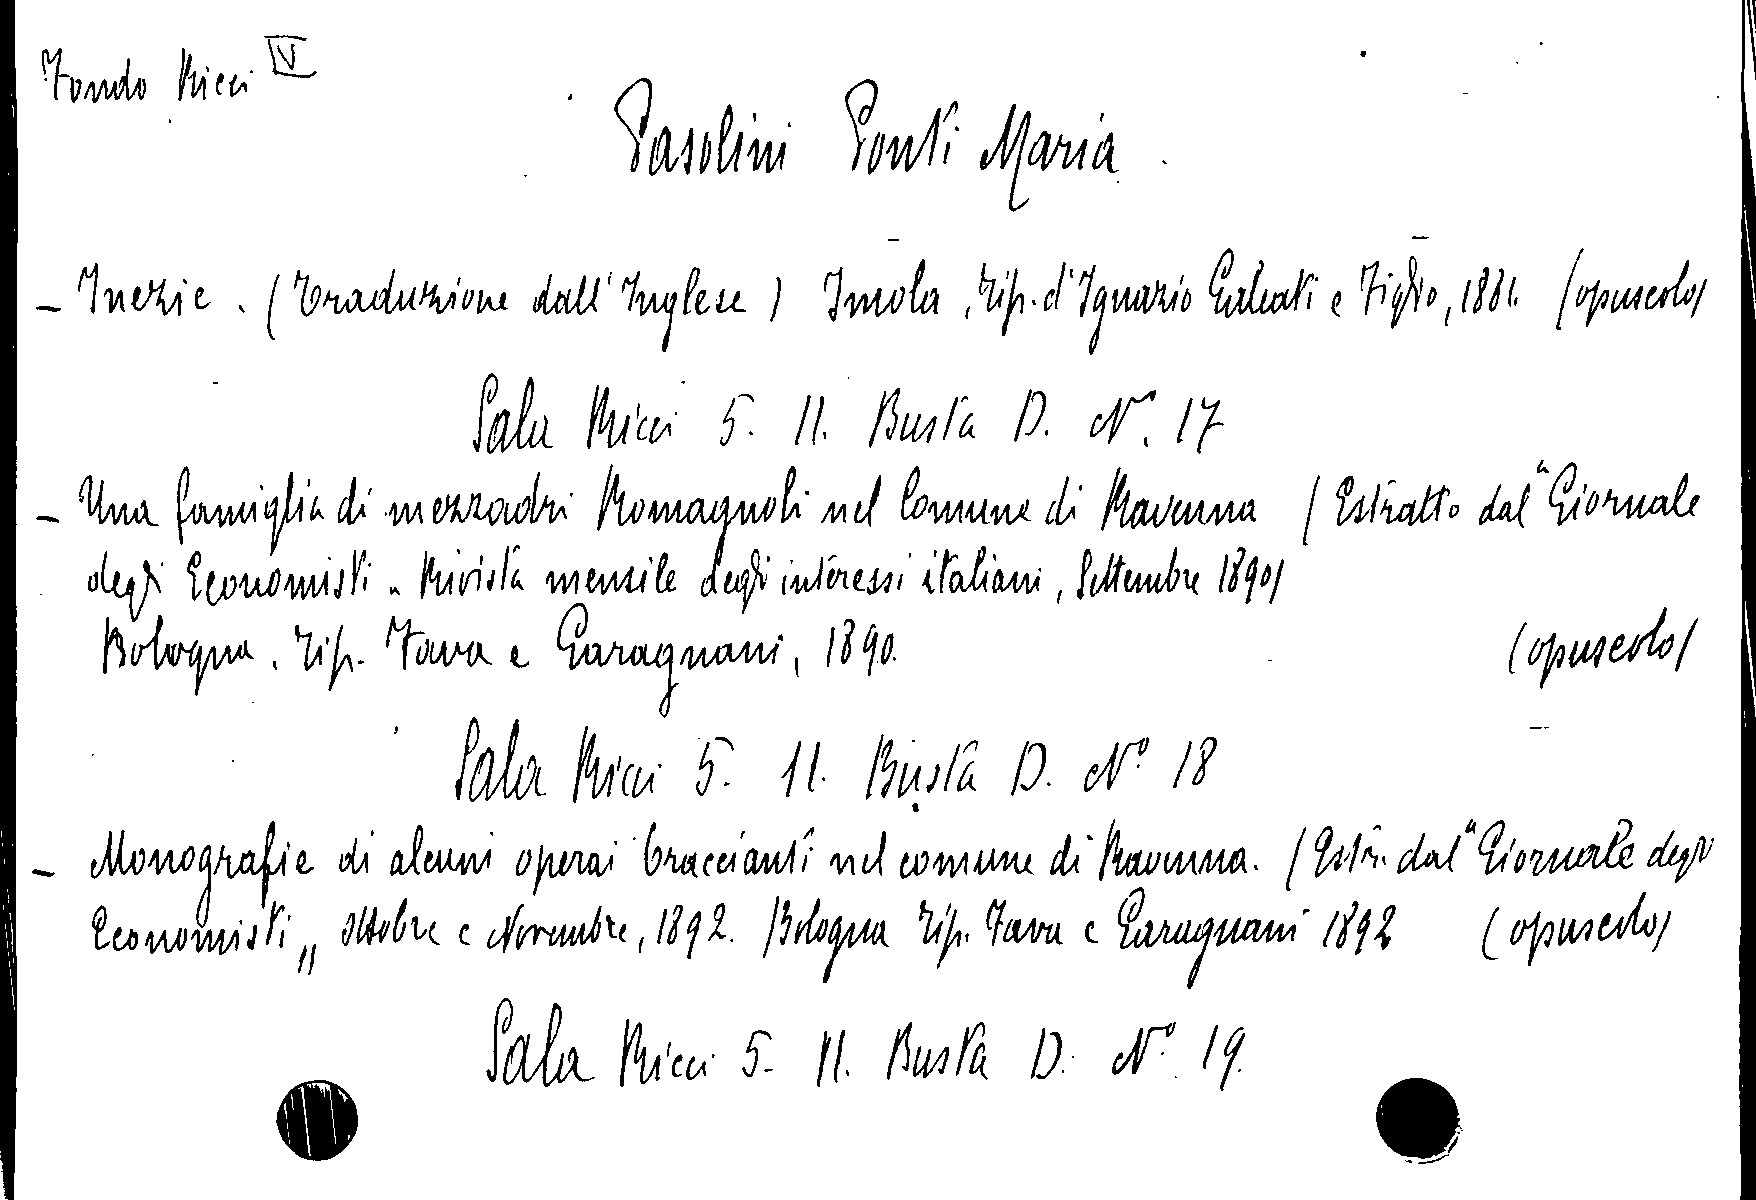 Fondo Ricci V
Pasolini Ponti Maria
- Inezie. (Traduzione dall'Inglese) Imola, Tip. d'Ignazio Galeati e Figlio, 1881. (opuscolo)
Sala Ricci 5. 11. Busta D. N°. 17
- Una famiglia di mezzadri Romagnoli nel Comune di Ravenna (Estratto dal "Giornale
degli Economisti" Rivista mensile degli interessi italiani, Settembre 1890)
Bologna. Tip. Fava e Garagnani, 1890. (opuscolo)
Sala Ricci 5. 11. Busta D. N° 18
- Monografie di alcuni operai braccianti nel comune di Ravenna. (Estr. dal "Giornale degli
Economisti„ Ottobre e Novembre, 1892. Bologna Tip. Fava e Garagnani 1892 (opuscolo)
Sala Ricci 5. 11. Busta D. N° 19.